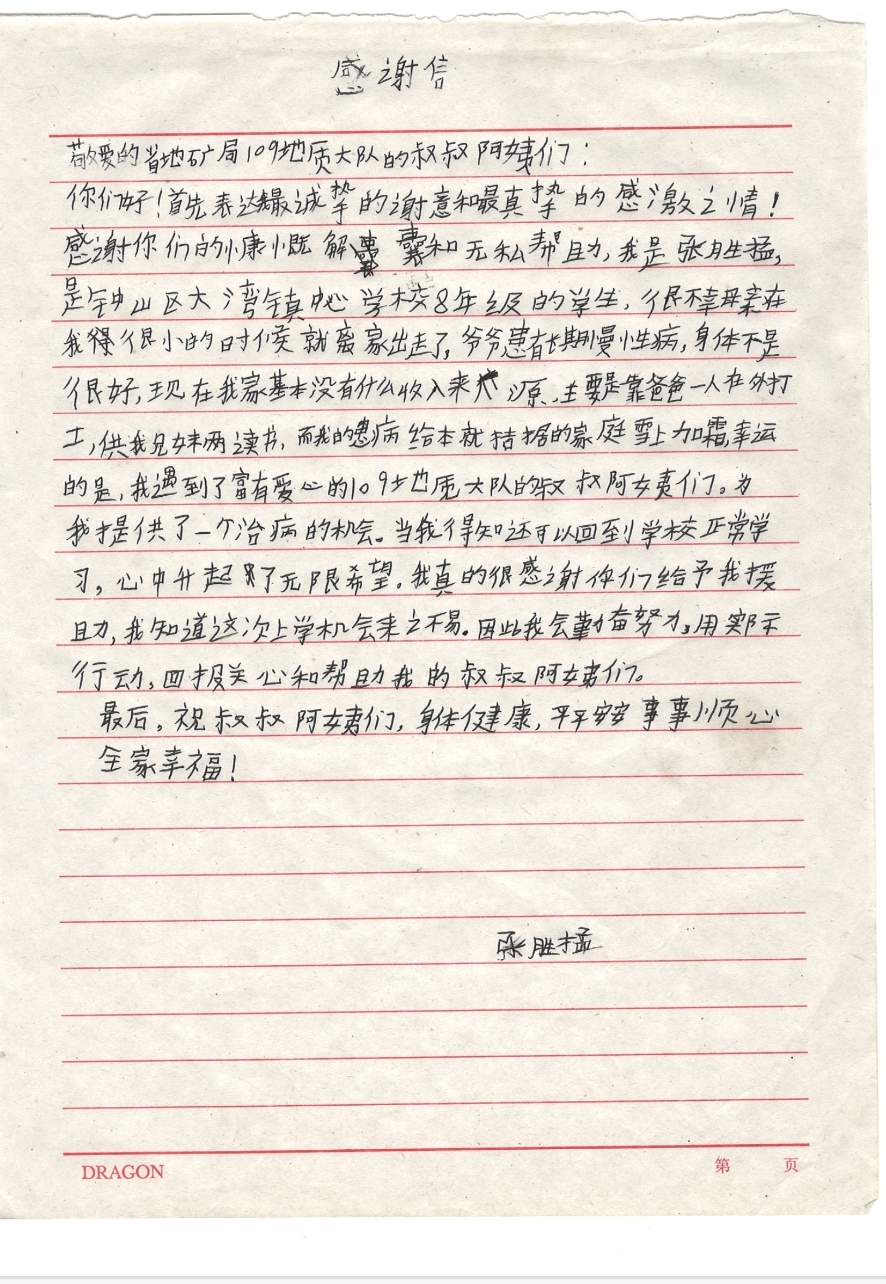 感谢信
敬爱的省地矿局109地质大队的叔叔阿姨们:
你们好!首先表达最诚挚的谢意和最真挚的感激之情!
感谢你们的慷慨解囊和无私帮助,我是张胜猛,
是钟山区大湾镇中心学校8年级的学生,很不幸母亲在
我得很小的时候就离家出走了,爷爷患有长期慢性病,身体不是
很好,现在我家基本没有什么收入来源,主要是靠爸爸一人在外打
工,供我兄妹两读书,而我的患病给本就拮据的家庭雪上加霜,幸运
的是,我遇到了富有爱心的109地质大队的叔叔阿姨们。为
我提供了一个治病的机会。当我得知还可以回到学校正常学
习,心中升起了无限希望。我真的很感谢你们给予我援
助,我知道这次上学机会来之不易。因此我会勤奋努力,用实际
行动,回报关心和帮助我的叔叔阿姨们。
最后,祝叔叔阿姨们,身体健康,平平安安事事顺心
全家幸福!
张胜猛
DRAGON 第 页